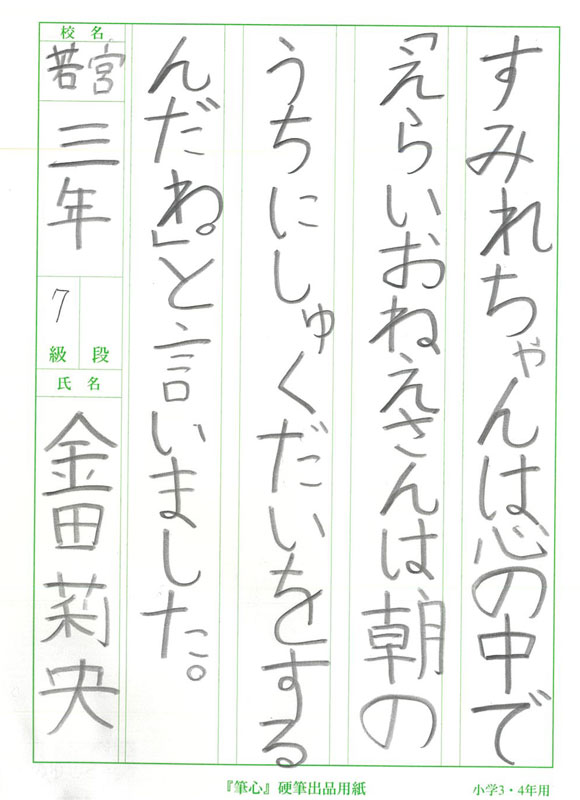 すみれちゃんは心の中で
「えらいおねえさんは、朝の
うちにしゅくだいをする
んだね。」と言いました。
校名
若宮
三年
7
級 段
氏名
金田莉央
『筆心』硬筆出品用紙
小学3・4年用